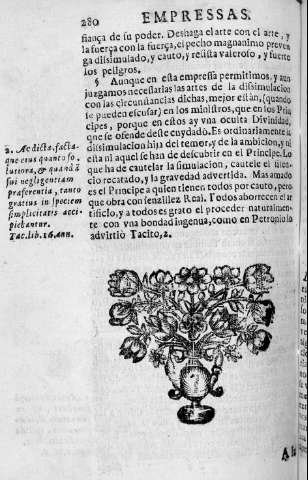 280 EMPRESSAS.
fiança de su poder. Deshaga el arte con el arte, y
la fuerça con la fuerça, el pecho magnanimo preven
ga dissimulado, y cauto, y resista valeroso, y fuerte
los peligros.
§ Aunque en esta empressa permitimos, y aun
juzgamos necessarias las artes de la dissimulacion
con las circunstancias dichas, mejor están, (quando
se pueden escusar) en los ministros, que en los Prin
cipes, porque en estos ay vna oculta Divinidad,
que se ofende deste cuydado. Es ordinariamente la
dissimulacion hija del temor, y de la ambicion, y ni
esta ni aquel se han de descubrir en el Principe. Lo
que ha de cautelar la simulacion, cautele el silen
cio recatado, y la gravedad advertida. Mas amado
es el Principe a quien tienen todos por cauto, pero
que obra con senzillez Real. Todos aborrecen el ar
tificio, y a todos es grato el proceder naturalmen-
te con vna bondad ingenua, como en Petronio lo
advirtió Tacito, 2.
2. Ac dicta, facta
que eius quanto so
lutiora, & quandã
sui negligentiam
præferentia, tanto
gratius in speciem
simplicitatis acci-
piebantur.
Tac. lib. 16. ann.